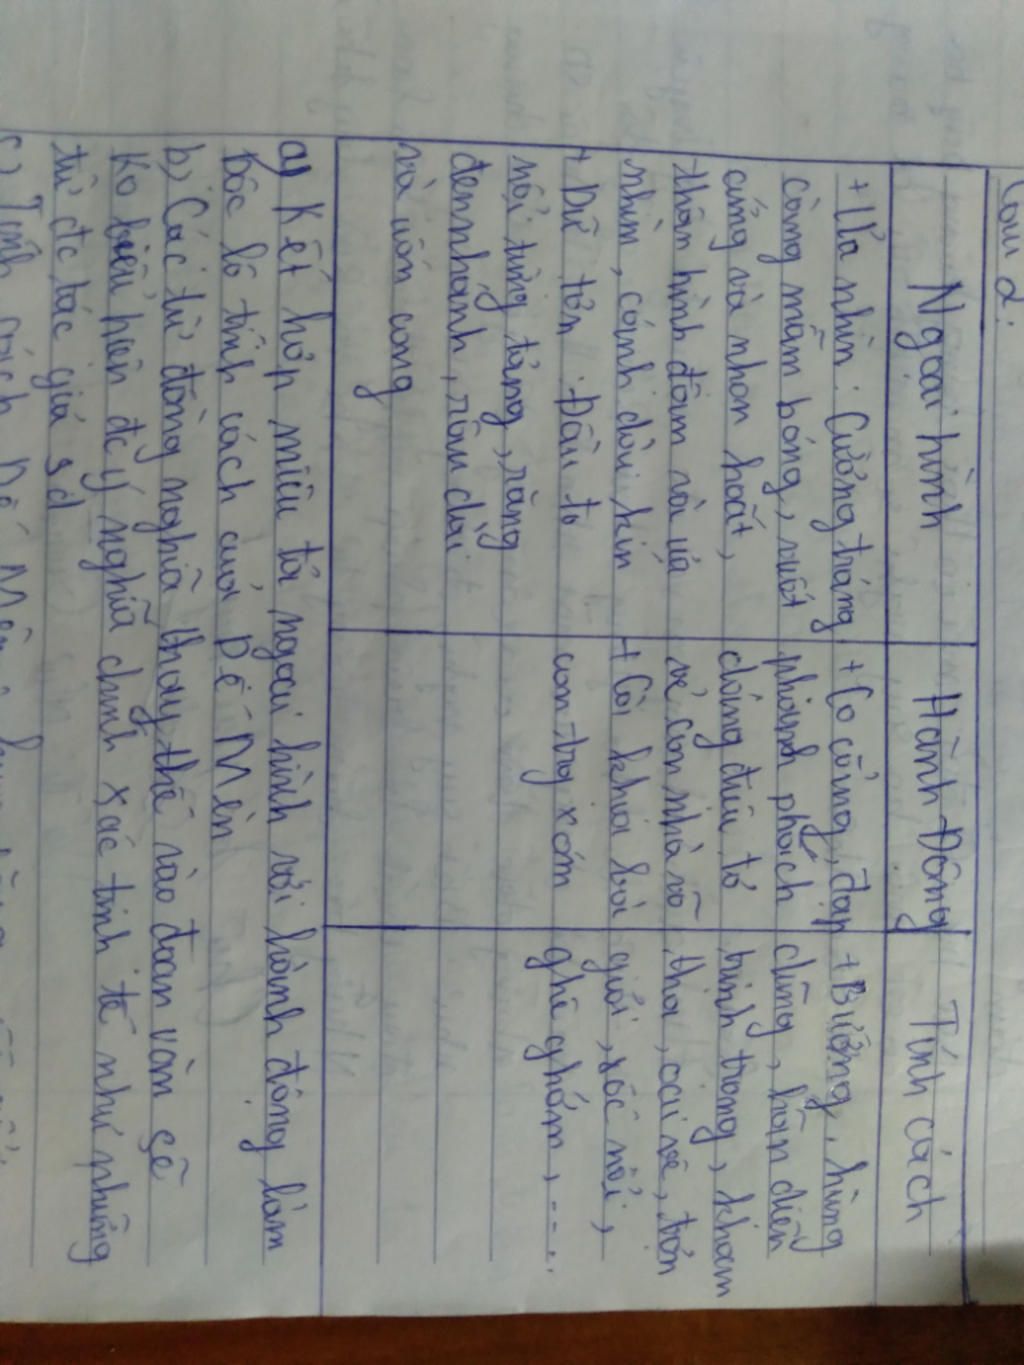 Câu 2:
Ngoại hình
Hành Động
Tính cách
+ Ưa nhìn: Cường tráng
càng mẫm bóng, vuốt
cứng và nhọn hoắt,
thân hình đậm và ưa
nhìn, cánh dài kín
+ Dữ tợn: Đầu to
nổi từng tảng, răng
đen nhánh, râu dài
và uốn cong
+ Co cẳng, đạp
phành phạch
dáng điệu tỏ
vẻ con nhà võ
+ Cà khịa bà
con trg xóm
+ Bướng, hùng
dũng, hãn diện
trịnh trọng, kham
thai, oai vệ, tợn
giỏi, xốc nổi,
ghê ghớm, ....
a) Kết hợp miêu tả ngoại hình với hành động làm
bộc lộ tính cách của Dế Mèn
b) Các từ đồng nghĩa thay thế vào đoạn văn sẽ
ko biểu hiện đc ý nghĩa chính xác tinh tế như những
từ đc tác giả sd
c) Tính cách Dế Mèn